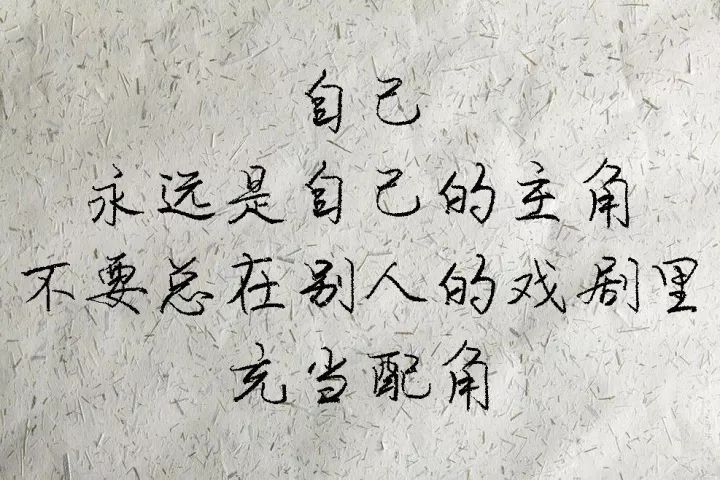 自己
永远是自己的主角
不要总在别人的戏剧里
充当配角